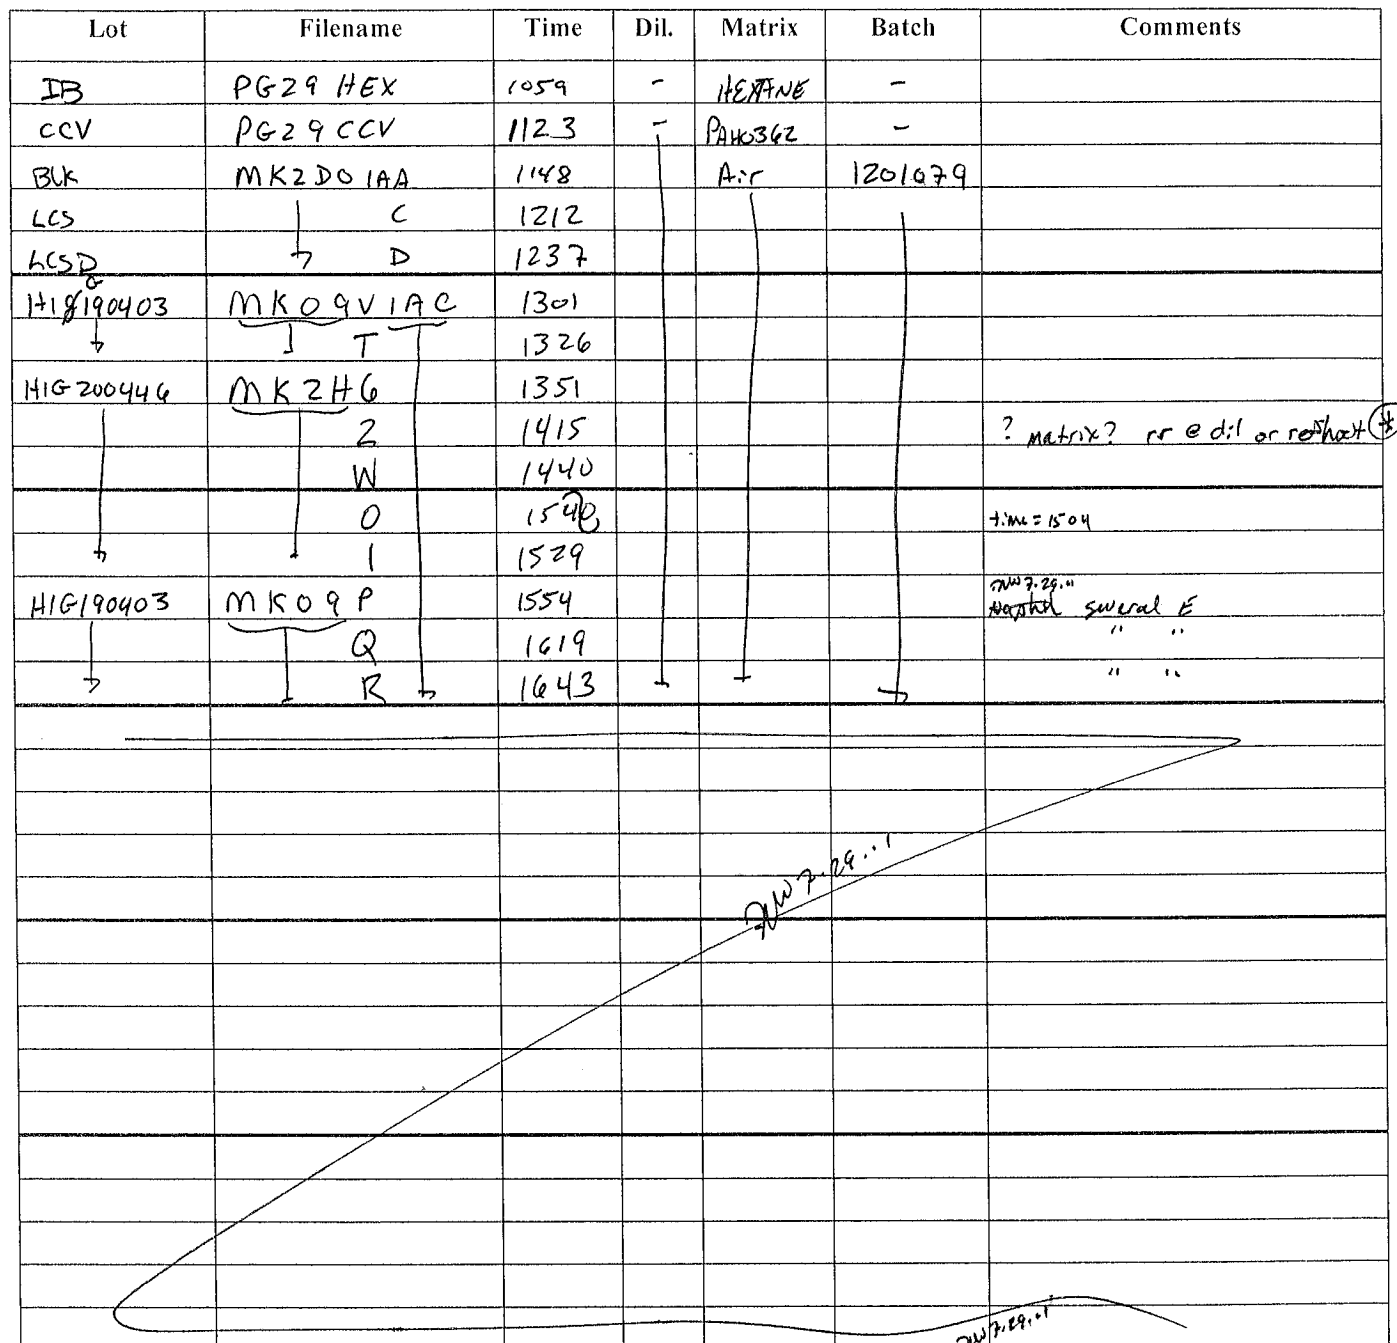 Lot Filename Time Dil. Matrix Batch Comments
IB PG29 HEX 1059 - HEXANE -
CCV PG29 CCV 1123 - PAH0362 -
BLK MK2D01AA 1148 Air 1201079
LCS C 1212
LCSD D 1237
H1G190403 MK09V1AC 1301
T 1326
H1G200446 MK2H6 1351
2 1415 ? matrix? rr @ dil or reshoot *
W 1440
0 1540 time = 1504
1 1529
7.29.11
H1G190403 MK09P 1554 several E
Q 1619 " "
R 1643 " "
7.29.11
7.29.11